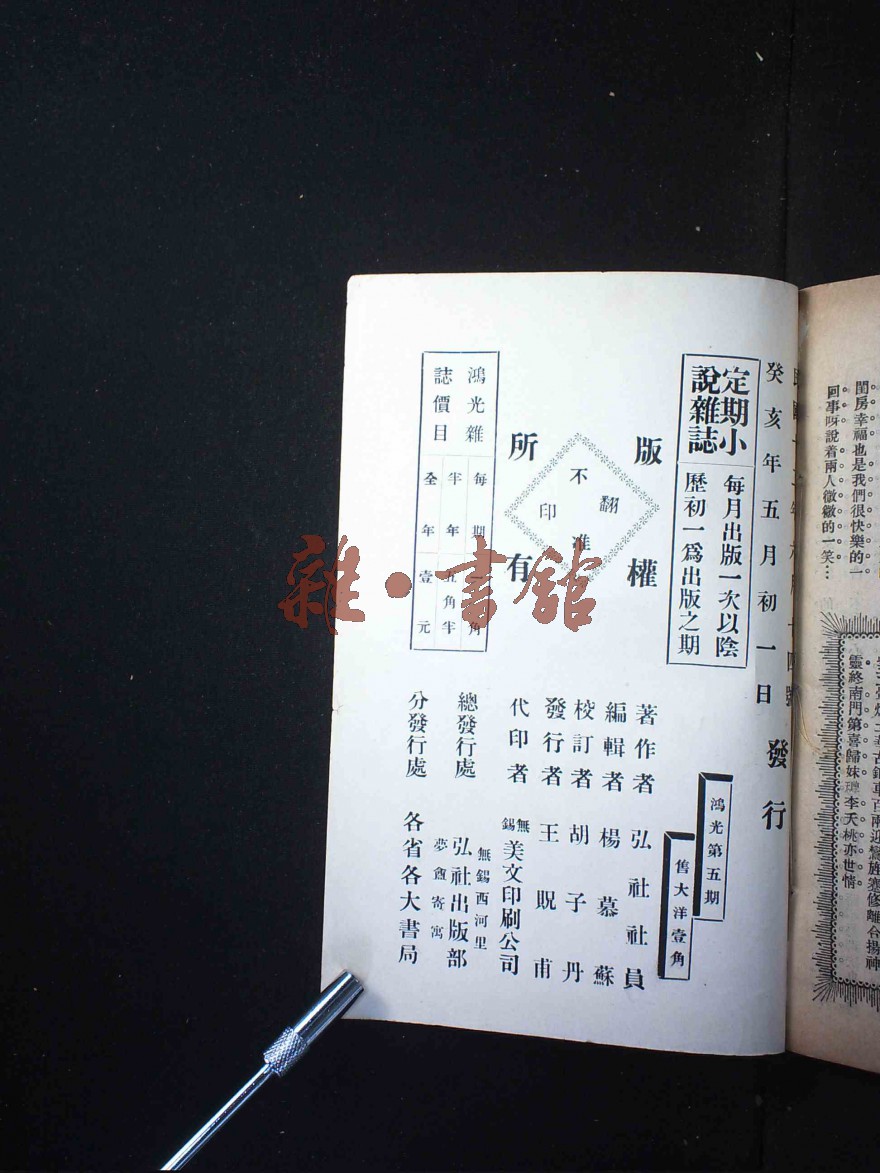 回事呀說着兩人微微的一笑…
閨房幸福也是我們很快樂的一
靈終南門第喜歸妹 李夭桃亦世情
癸亥年五月初一日
發行
定期小
說雜誌
每月出版一次以陰
歷初一爲出版之期
版權
所有
翻
不准
印
鴻光雜
誌價目
每期 角
半年五角半
全年壹元
鴻光第五期
售大洋壹角
著作者 弘社社員
編輯者 楊慕蘇
校訂者 胡子丹
發行者 王貺甫
代印者 無錫美文印刷公司
總發行處 無錫西河里
弘社出版部
夢 寄寓
分發行處 各省各大書局
雜·書館